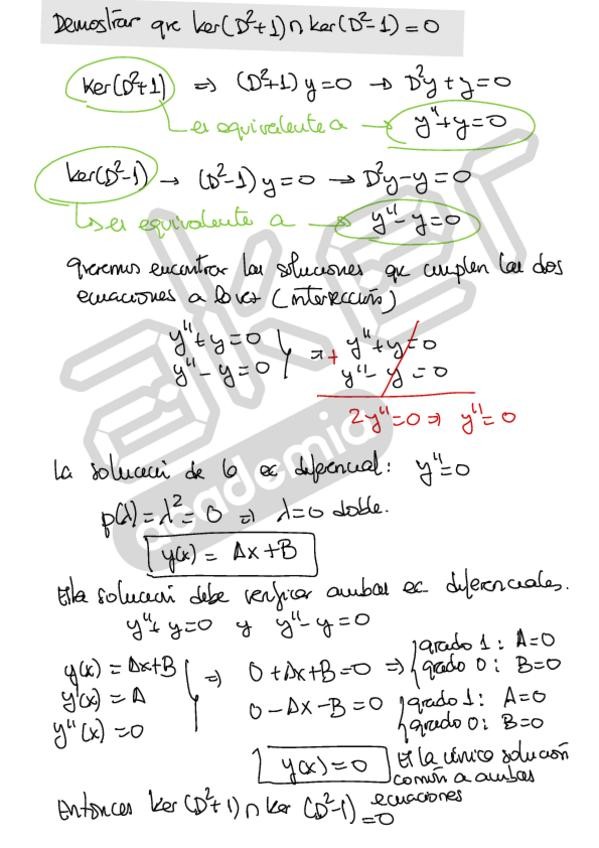 Demostrar que ker(D²+1) ∩ ker(D²-1) = 0
ker(D²+1) ⇒ (D²+1) y=0 → D²y+y=0
es equivalente a → y''+y=0
ker(D²-1) → (D²-1) y=0 → D²y-y=0
↳ es equivalente a → y''-y=0
queremos encontrar las soluciones que cumplen las dos
ecuaciones a la vez (intersección)
y''+y=0 } ⇒ + y''+y=0
y''-y=0 y''-y=0
2y''=0 ⇒ y''=0
La solución de la ec diferencial: y''=0
p(λ)=λ²=0 ⇒ λ=0 doble.
y(x) = Ax+B
Esta solución debe verificar ambas ec diferenciales.
y''+y=0 y y''-y=0
y(x) = Ax+B } ⇒ 0+Ax+B=0 ⇒ { grado 1: A=0
y'(x) = A { grado 0: B=0
y''(x) = 0 0-Ax-B=0 { grado 1: A=0
{ grado 0: B=0
y(x)=0 Es la única solución
común a ambas
ecuaciones
Entonces ker(D²+1) ∩ ker(D²-1) =0
aker
academia